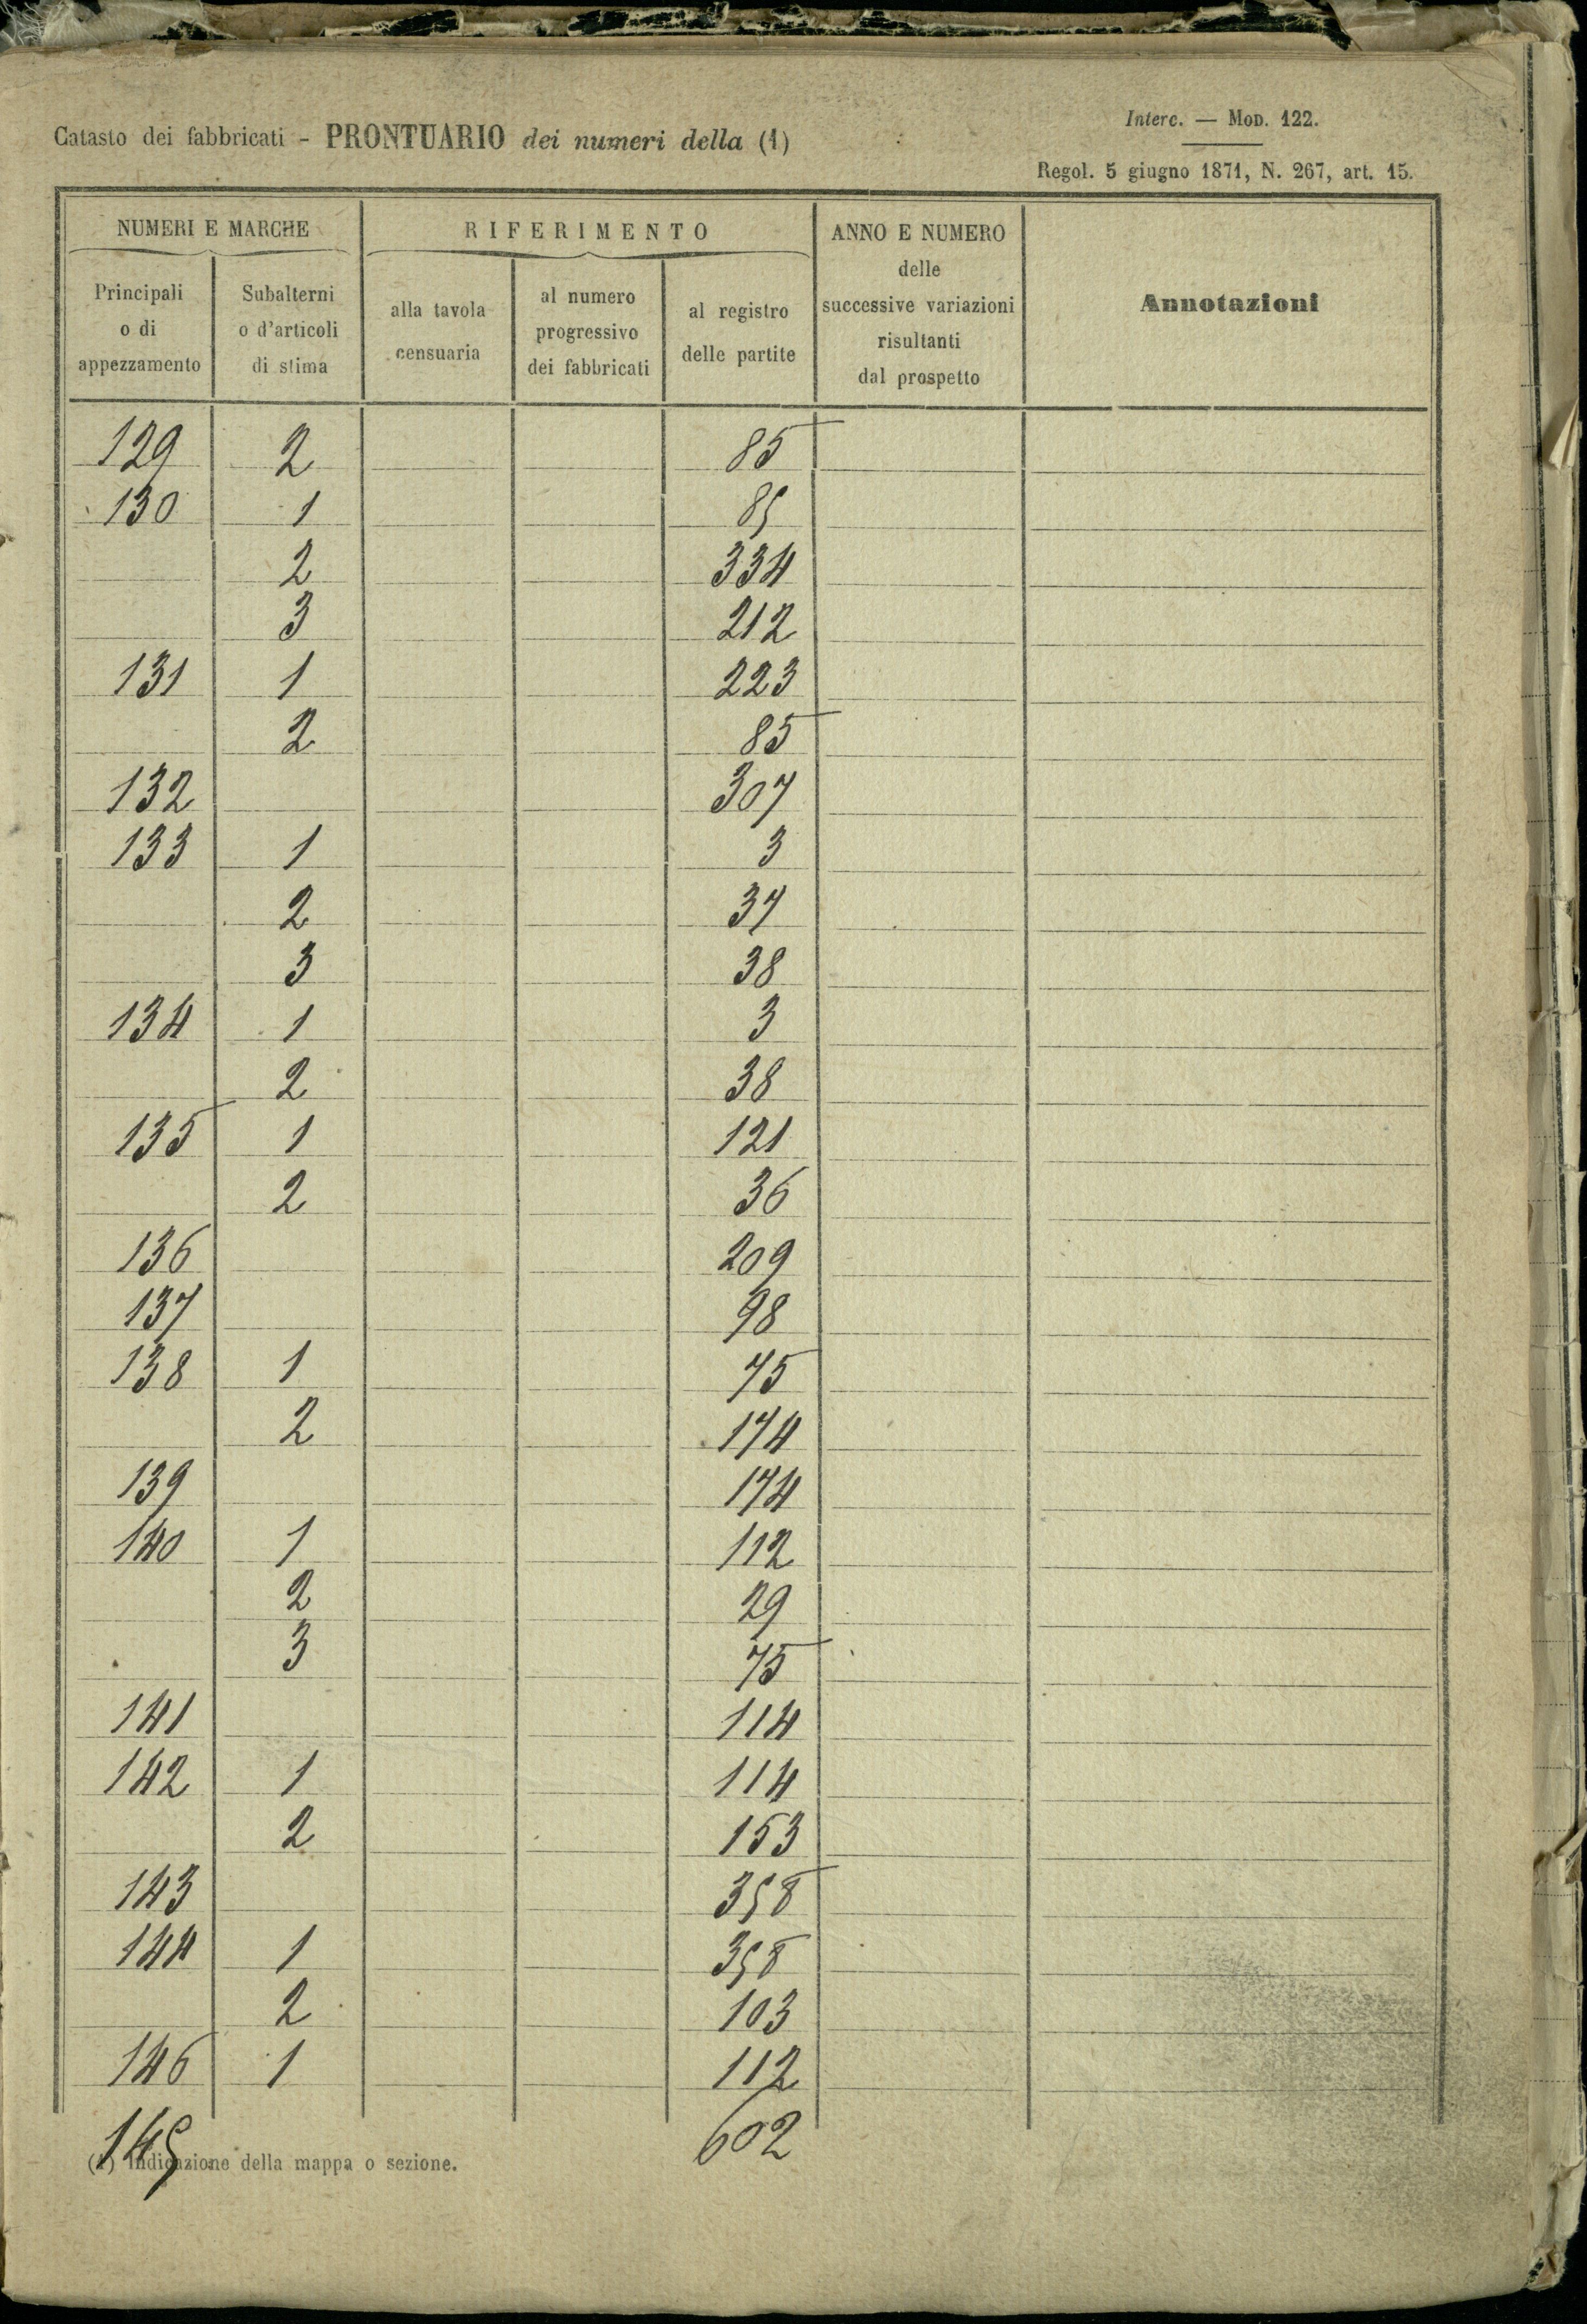 Catasto dei fabbricati - PRONTUARIO dei numeri della (1)
Interc. — MOD. 122.
Regol. 5 giugno 1871, N. 267, art. 15.
NUMERI E MARCHE
RIFERIMENTO
ANNO E NUMERO
delle
successive variazioni
risultanti
dal prospetto
Annotazioni
Principali
o di
appezzamento
Subalterni
o d'articoli
di stima
alla tavola
censuaria
al numero
progressivo
dei fabbricati
al registro
delle partite
129 2 85
130 1 85
2 334
3 212
131 1 223
2 85
132 307
133 1 3
2 37
3 38
134 1 3
2 38
135 1 121
2 36
136 209
137 98
138 1 75
2 174
139 174
140 1 112
2 29
3 75
141 114
142 1 114
2 153
143 358
144 1 358
2 103
146 1 112
145 602
(1) Indicazione della mappa o sezione.